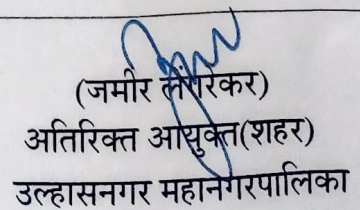 (जमीर लेंगरेकर)
अतिरिक्त आयुक्त(शहर)
उल्हासनगर महानगरपालिका